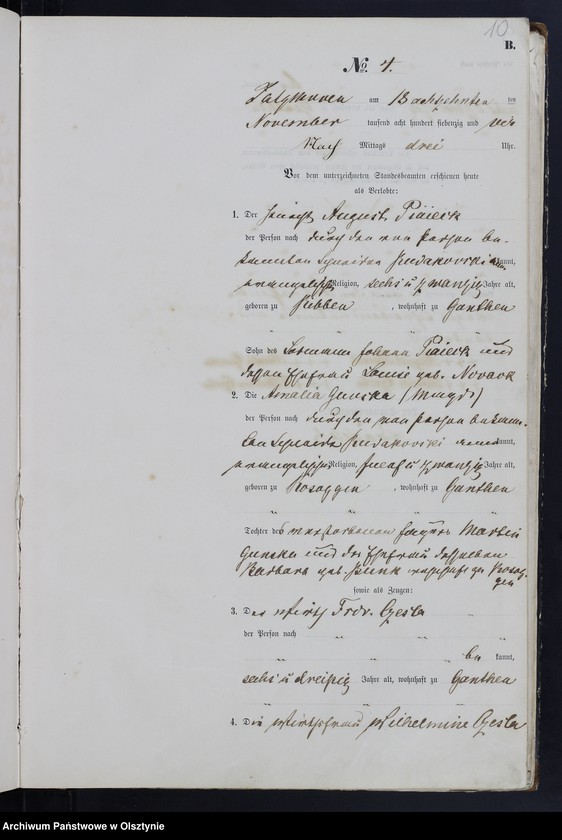 10
B.
No. 4.
am 13 achtzehnten ten
November tausend acht hundert siebenzig und vier
Nach Mittags drei Uhr.
Vor dem unterzeichneten Standesbeamten erschienen heute
als Verlobte:
1. Der Knecht August Piaieck
der Person nach durch den von Person be-
kannten kannt,
evangelischer Religion, sechs u zwanzig Jahre alt,
geboren zu Ribben, wohnhaft zu Ganthen
Sohn des Losmann Johann Piaieck und
dessen Ehefrau geb. Novack
2. Die Amalia (Magd)
der Person nach durch den von Person bekann-
ten kannt,
evangelischer Religion, fuenf u zwanzig Jahre alt,
geboren zu Rosoggen, wohnhaft zu Ganthen
Tochter des verstorbenen Martin
und der Ehefrau desselben
Barbara geb. wohnhaft zu Rosog-
gen
sowie als Zeugen:
3. Der Wirth Frdr. Czesla
der Person nach
be kannt,
sechs u dreißig Jahre alt, wohnhaft zu Ganthen
4. Die Wirthsfrau Wilhelmine Czesla
Archiwum Państwowe w Olsztynie